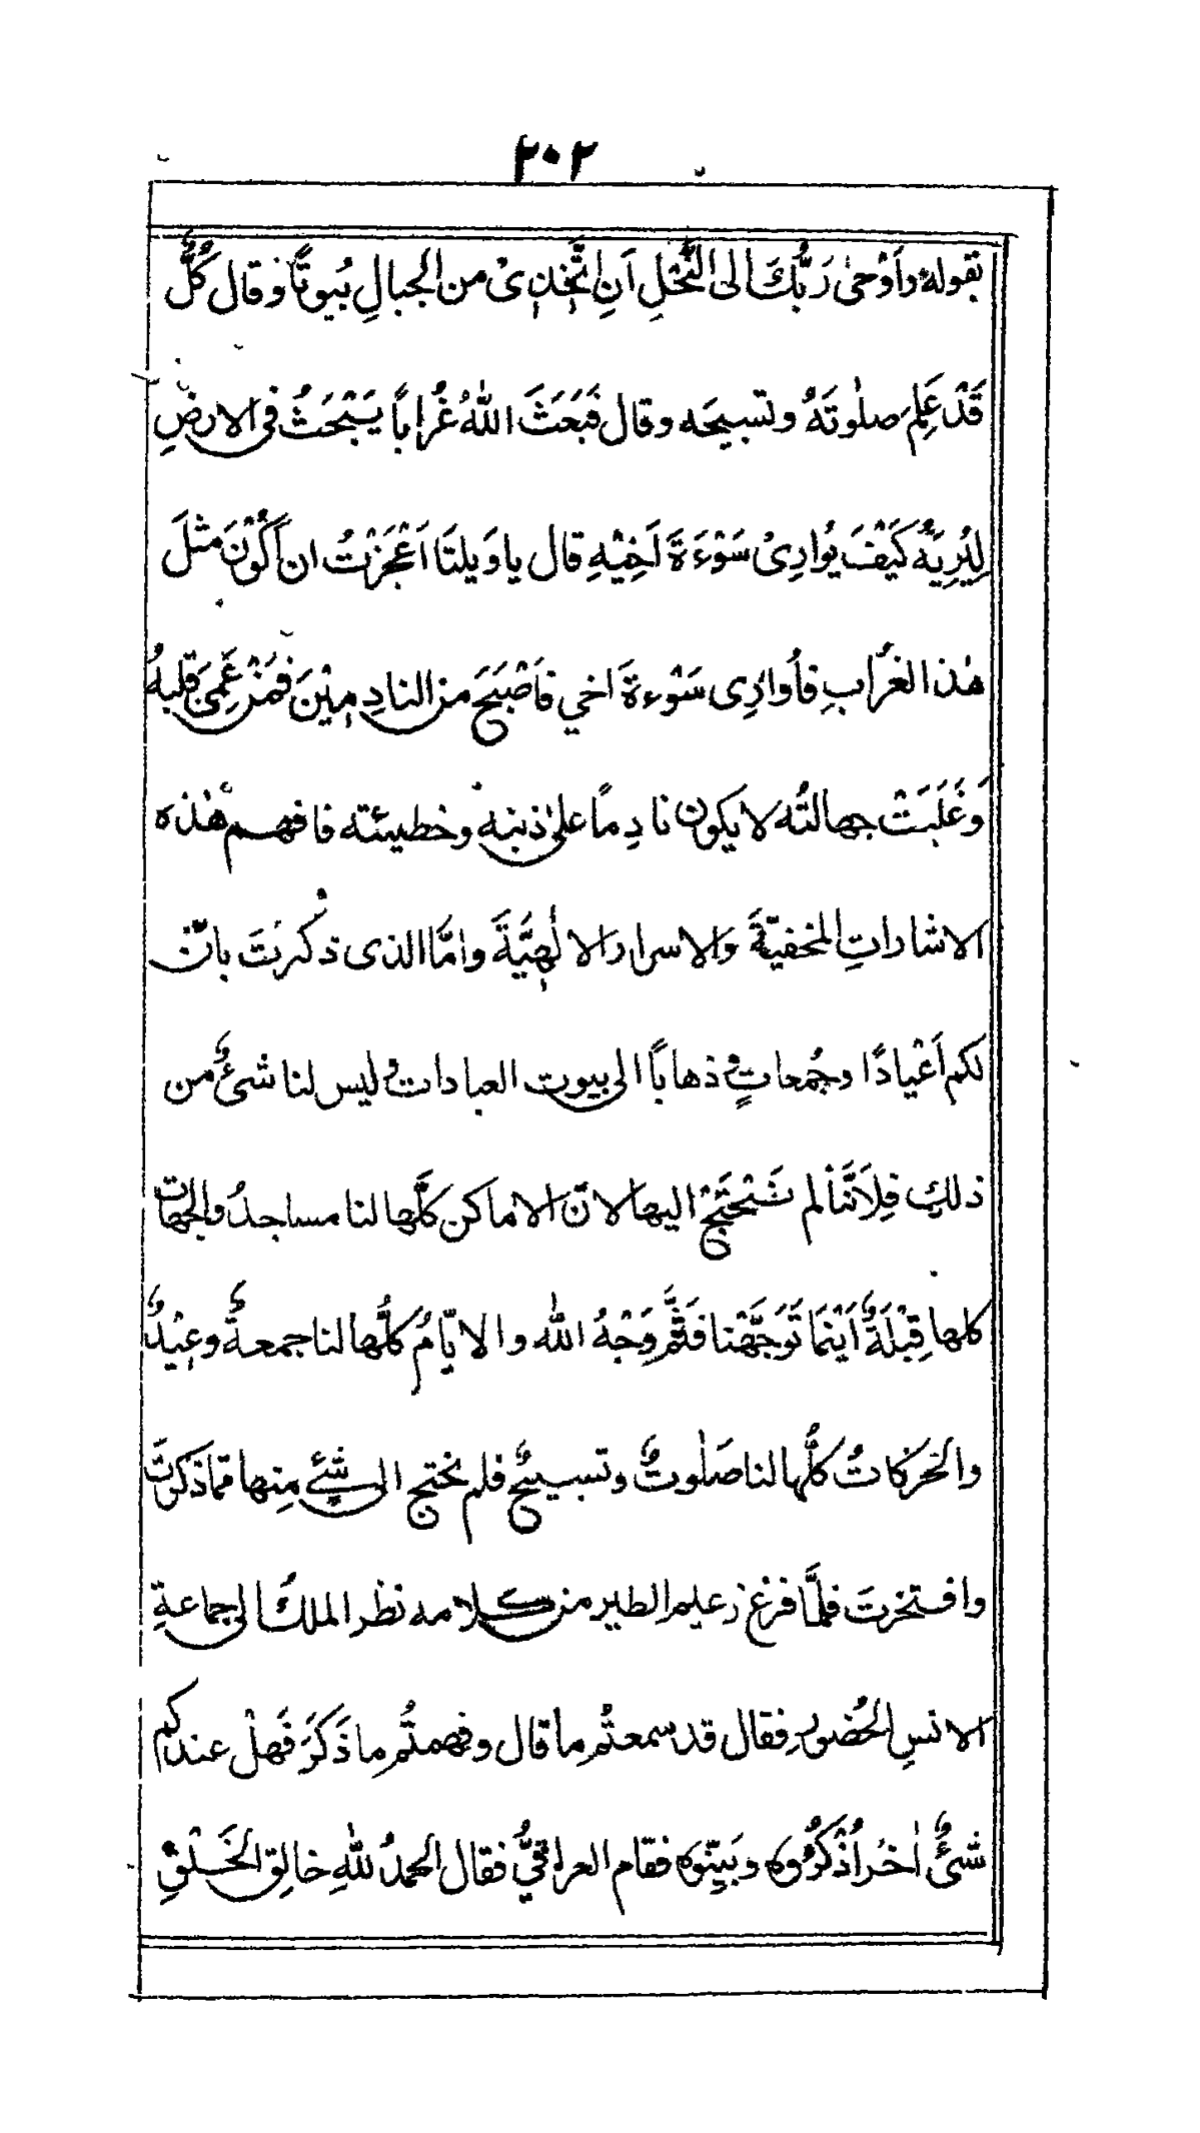 ٢٠٢
بقوله وَاَوْحٰى رَبُّكَ الى النَّحْلِ اَنِ اتَّخِذِىْ من الجبالِ بُيوتًا وقال كُلٌّ
قَدْ عَلِمَ صلٰوتَهُ وتسبيحَه وقال فَبَعَثَ اللّٰهُ غُرابًا يَبْحَثُ فى الارضِ
لِيُرِيَهُ كَيْفَ يُوارِىْ سَوْءَةَ اَخِيْهِ قال ياوَيلتَا اَعْجَزْتُ ان اَكُوْنَ مثلَ
هٰذا الغُرابِ فاُوارِى سَوْءةَ اخي فاَصْبَحَ من النادِمِيْنَ فمَنْ عَمِىَ قلبهُ
وَغَلَبَتْ جهالتُه لا يكون نادِمًا علىٰ ذنبهٖ وخطيئته فافهم هٰذه
الاشاراتِ المخفيّةَ والاسرار الالٰهِيَّةَ وامَّا الذى ذكرتَ بانّ
لكم اَعْيادًا وجُمعاتٍ وذهابًا الى بيوت العبادات وليس لنا شئٌ من
ذلك فلِاَنَّنا لم نَحْتَجْ اليها لانّ الاماكن كلَّها لنا مساجدُ والجهات
كلها قِبْلَةٌ اَيْنَمَا تَوَجَّهْنا فَثَمَّ وَجْهُ اللّٰه والايّامُ كلُّها لنا جمعةٌ وعِيْدٌ
والحَركاتُ كلُّها لنا صَلٰوتٌ وتسبيحٌ فلم نحتج الى شئٍ مِنها ممّا ذَكرتَ
وافتخرتَ فلمَّا فرغ زعيم الطير من كلامه نظر الملكُ الى جماعةِ
الانسِ الحُضورِ فقال قد سمعتُم ما قال وفهمتُم ما ذَكَرَ فَهلْ عندكم
شئٌ اٰخرُ اُذْكُرُوه وبَيِّنوه فقام العراقيُّ فقال الحمدُ للّٰهِ خالِقِ الخَلْقِ